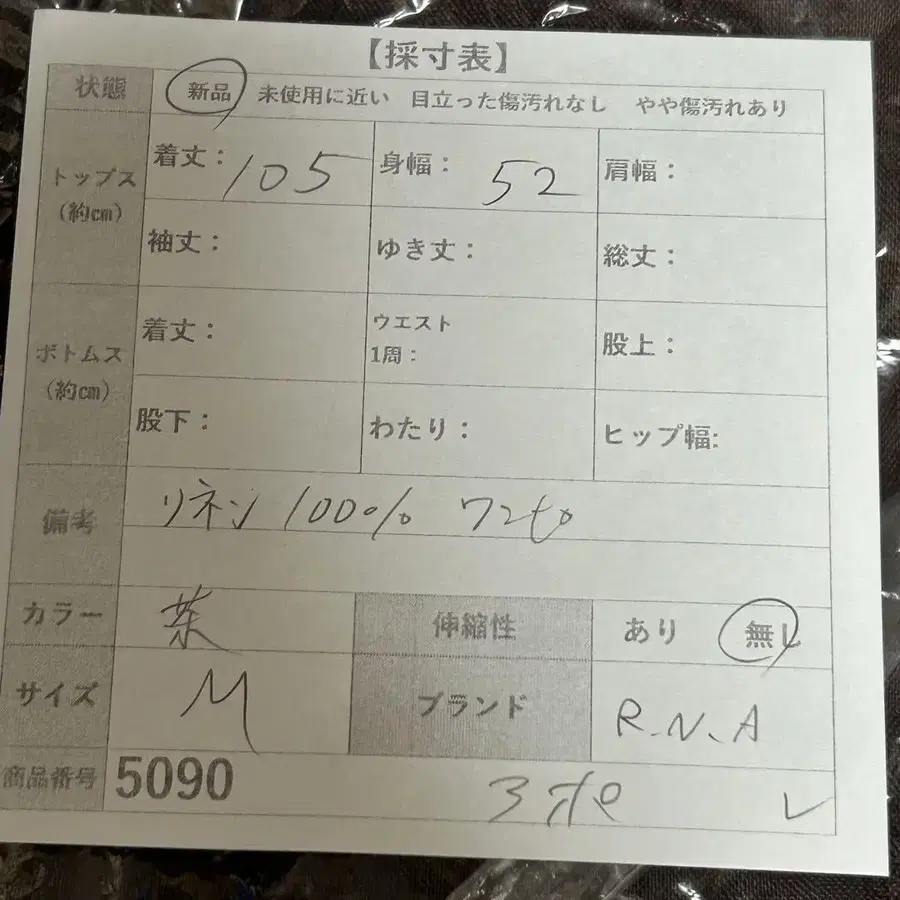 【採寸表】
状態 新品 未使用に近い 目立った傷汚れなし やや傷汚れあり
トップス
(約cm)
着丈：105 身幅：52 肩幅：
袖丈： ゆき丈： 総丈：
ボトムス
(約cm)
着丈： ウエスト
1周： 股上：
股下： わたり： ヒップ幅:
備考 リネン 100%
カラー 茶 伸縮性 あり 無し
サイズ M ブランド R.N.A
商品番号 5090